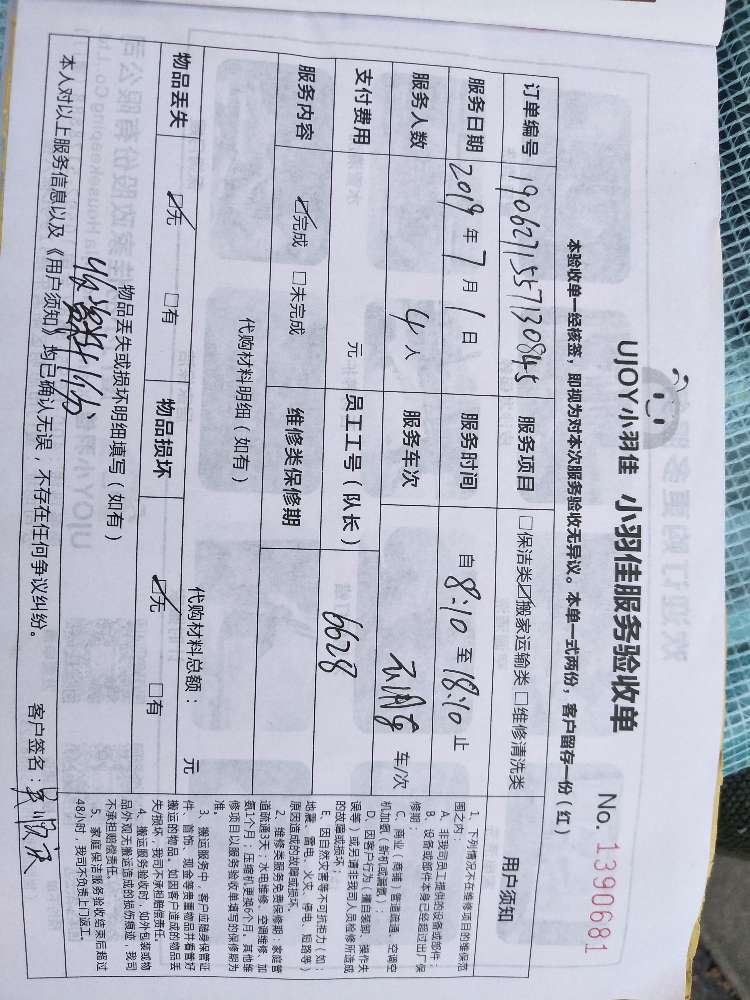 UJOY小羽佳 小羽佳服务验收单
No. 1390681
本验收单一经核签，即视为对本次服务验收无异议。本单一式两份，客户留存一份（红）
订单编号 1906271557130845 服务项目 □保洁类☑搬家运输类□维修清洗类
服务日期 2019年7月1日 服务时间 自8:10至18:10止
服务人数 4人 服务车次 车/次
支付费用 元 员工工号（队长） 6628
服务内容 ☑完成 □未完成 维修类保修期
代购材料明细（如有） 代购材料总额： 元
物品丢失 ☑无 □有 物品损坏 ☑无 □有
物品丢失或损坏明细填写（如有）
本人对以上服务信息以及《用户须知》均已确认无误，不存在任何争议纠纷。 客户签名：
用户须知
1、下列情况不在维修项目的维保范
围之内：
A、非我司员工提供的设备或部件；
B、设备或部件本身已经超过出厂保
修期；
C、商业（商铺）管道疏通、空调空
机加氨（新机或漏氨）；
D、因客户行为（擅自装卸、操作失
误等）或另请非我司人员检修所造成
的故障或损坏；
E、因自然灾害等不可抗拒力（如：
地震、雷电、火灾、停电、短路等）
原因造成的故障或损坏。
2、维修类服务免费保修期：家庭管
道疏通3天；水电维修、空调维修、加
氨1个月；压缩机更换6个月。其他维
修项目以服务验收单填写的保修期为
准。
3、搬运服务中，客户应随身保管证
件、首饰、现金等贵重物品并看管好
搬运的物品。如因客户造成的物品丢
失/损坏，我司不承担赔偿责任。
4、搬运服务验收时，如外包装或物
品外观无搬运造成的损伤痕迹，我司
不承担赔偿责任。
5、家庭保洁服务验收结束后超过
48小时，我司不负责上门返工。